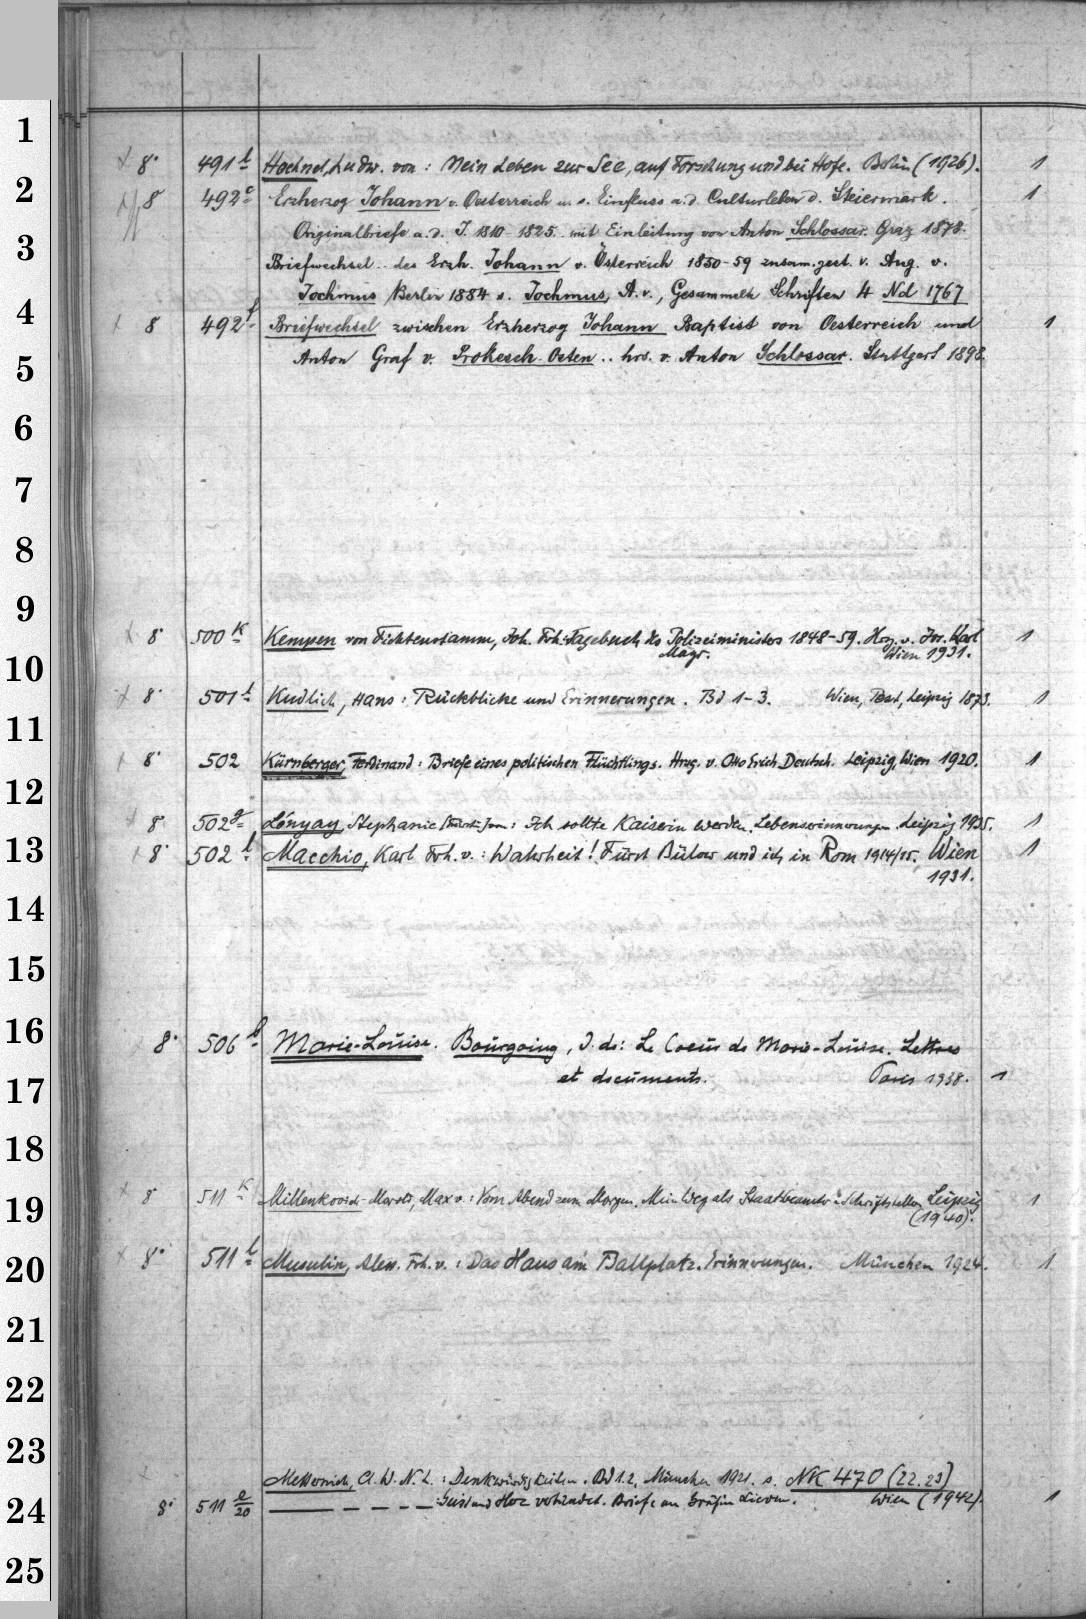 1
2
3
4
5
6
7
8
9
10
11
12
13
14
15
16
17
18
19
20
21
22
23
24
25
8° 491 l Hoehnel, Ludw. von: Mein Leben zur See, auf Forschung und bei Hofe. Berlin (1926). 1
8 492 c Erzherzog Johann v. Oesterreich u. s. Einfluss a. d. Culturleben d. Steiermark. 1
Originalbriefe a. d. J. 1810-1825. mit Einleitung von Anton Schlossar. Graz 1878.
Briefwechsel .. des Erzh. Johann v. Österreich 1850-59 zusam. gest. v. Aug. v.
Jochmus Berlin 1884 s. Jochmus, A. v., Gesammelte Schriften 4 Nd 1767
8 492 f Briefwechsel zwischen Erzherzog Johann Baptist von Oesterreich und 1
Anton Graf v. Prokesch-Osten .. hrs. v. Anton Schlossar. Stuttgart 1898.
8° 500 K Kempen von Fichtenstamm, Joh. Frh.: Tagebuch des Polizeiministers 1848-59. Hrg. v. Jos. Karl 1
Mayr. Wien 1931.
8° 501 t Kudlich, Hans: Rückblicke und Erinnerungen. Bd 1-3. Wien, Pest, Leipzig 1873. 1
8° 502 Kürnberger, Ferdinand: Briefe eines politischen Flüchtlings. Hrsg. v. Otto Erich Deutsch. Leipzig, Wien 1920. 1
8° 502 g Lónyay, Stephanie [Fürstin] von: Ich sollte Kaiserin werden. Lebenserinnerungen. Leipzig 1935. 1
8° 502 l Macchio, Karl Frh. v.: Wahrheit! Fürst Bülow und ich in Rom 1914/15. Wien 1
1931.
8° 506 b Marie-Louise. Bourgoing, J. de: Le Coeur de Marie-Louise. Lettres
et documents. Paris 1938. 1
8° 511 K Millenkovich-Morold, Max v.: Vom Abend zum Morgen. Mein Weg als Staatsbeamter u. Schriftsteller Leipzig 1
(1940).
8° 511 l Musulin, Alex. Frh. v.: Das Haus am Ballplatz. Erinnerungen. München 1924. 1
Metternich, Cl. W. N. L.: Denkwürdigkeiten. Bd 1.2. München 1921. s. NK 470 (22.23)
8° 511 e/20 — — — — —: Geist und Herz verbündet. Briefe an Gräfin Lieven. Wien (1942). 1